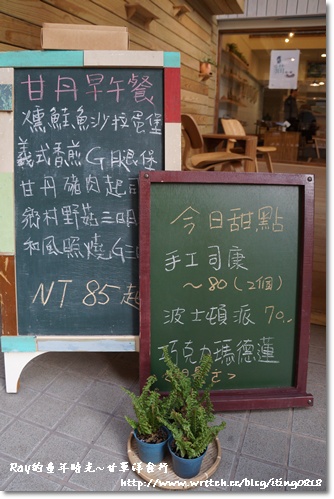 甘丹早午餐
燻鮭魚沙拉蛋堡
義式香煎G腿堡
甘丹豬肉起司
鄉村野菇三明
和風照燒G三
NT 85起
今日甜點
手工司康
~80(2個)
波士頓派 70.
巧克力瑪德蓮
Ray的童年時光~甘單洋食行
http://www.wrttch.cc/blog/iting0818